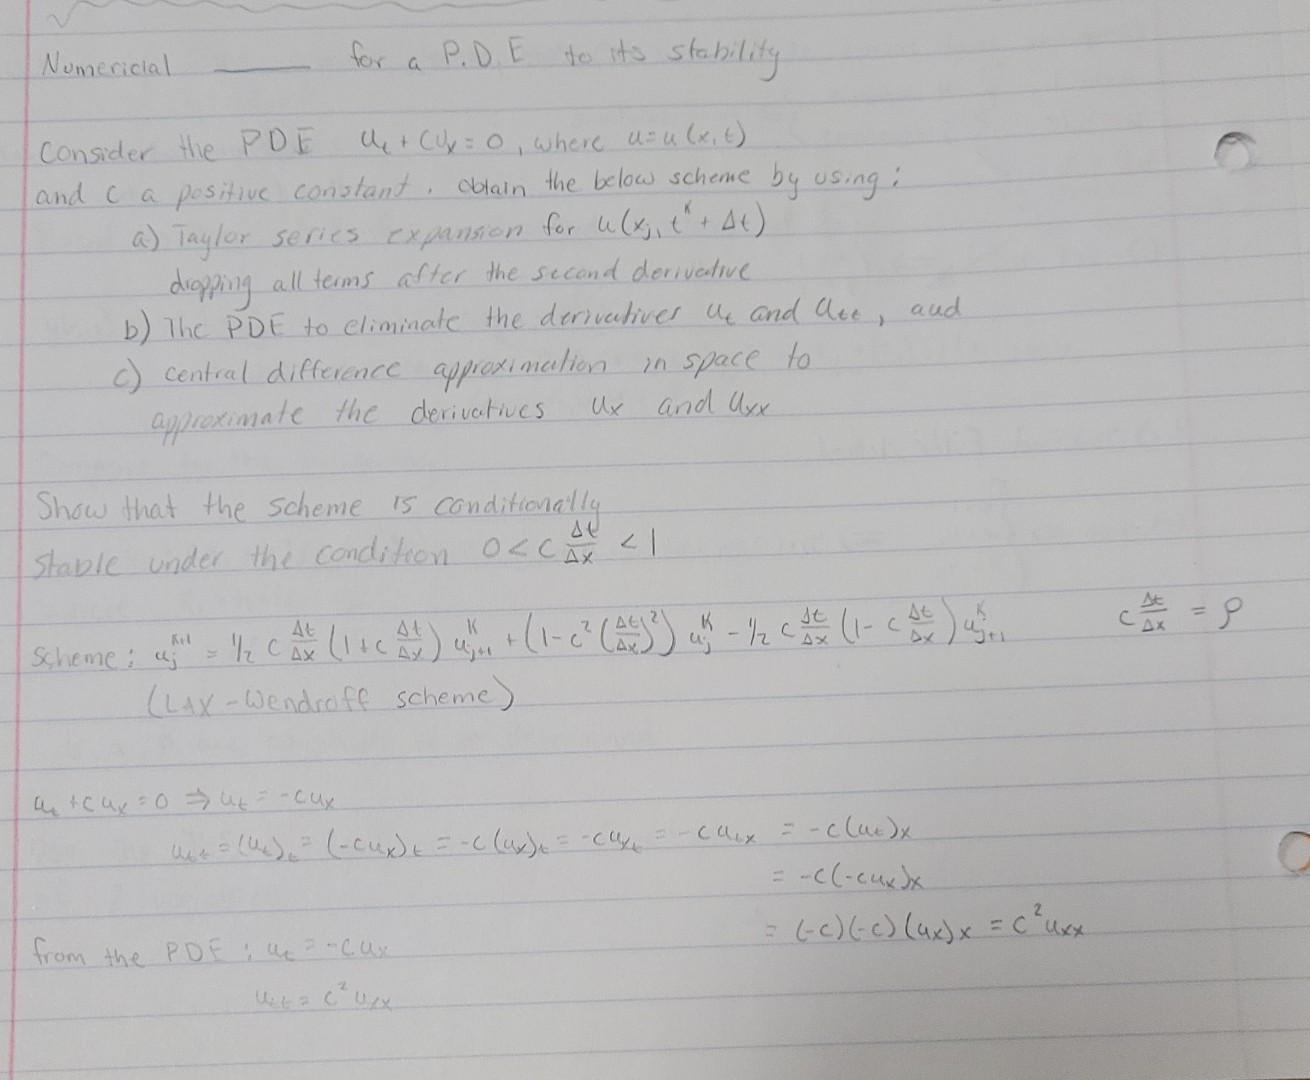 Numericial ____ for a P.D.E to its stability
Consider the PDE u_t + cu_x = 0, where u = u(x,t)
and c a positive constant. obtain the below scheme by using:
a) Taylor series expansion for u(x_j, t^k + Δt)
dropping all terms after the second derivative
b) The PDE to eliminate the derivatives u_t and u_tt, and
c) central difference approximation in space to
approximate the derivatives u_x and u_xx
Show that the scheme is conditionally
stable under the condition 0 < c Δt/Δx < 1
Scheme: u_j^{k+1} = 1/2 c Δt/Δx (1 + c Δt/Δx) u_{j+1}^k + (1 - c^2 (Δt/Δx)^2) u_j^k - 1/2 c Δt/Δx (1 - c Δt/Δx) u_{j+1}^k    c Δt/Δx = ρ
(LAX-Wendroff scheme)
u_t + cu_x = 0 ⇒ u_t = -cu_x
u_tt = (u_t)_t = (-cu_x)_t = -c(u_x)_t = -cu_xt = -cu_tx = -c(u_t)_x
= -c(-cu_x)_x
= (-c)(-c)(u_x)_x = c^2 u_xx
from the PDE: u_t = -cu_x
u_tt = c^2 u_xx